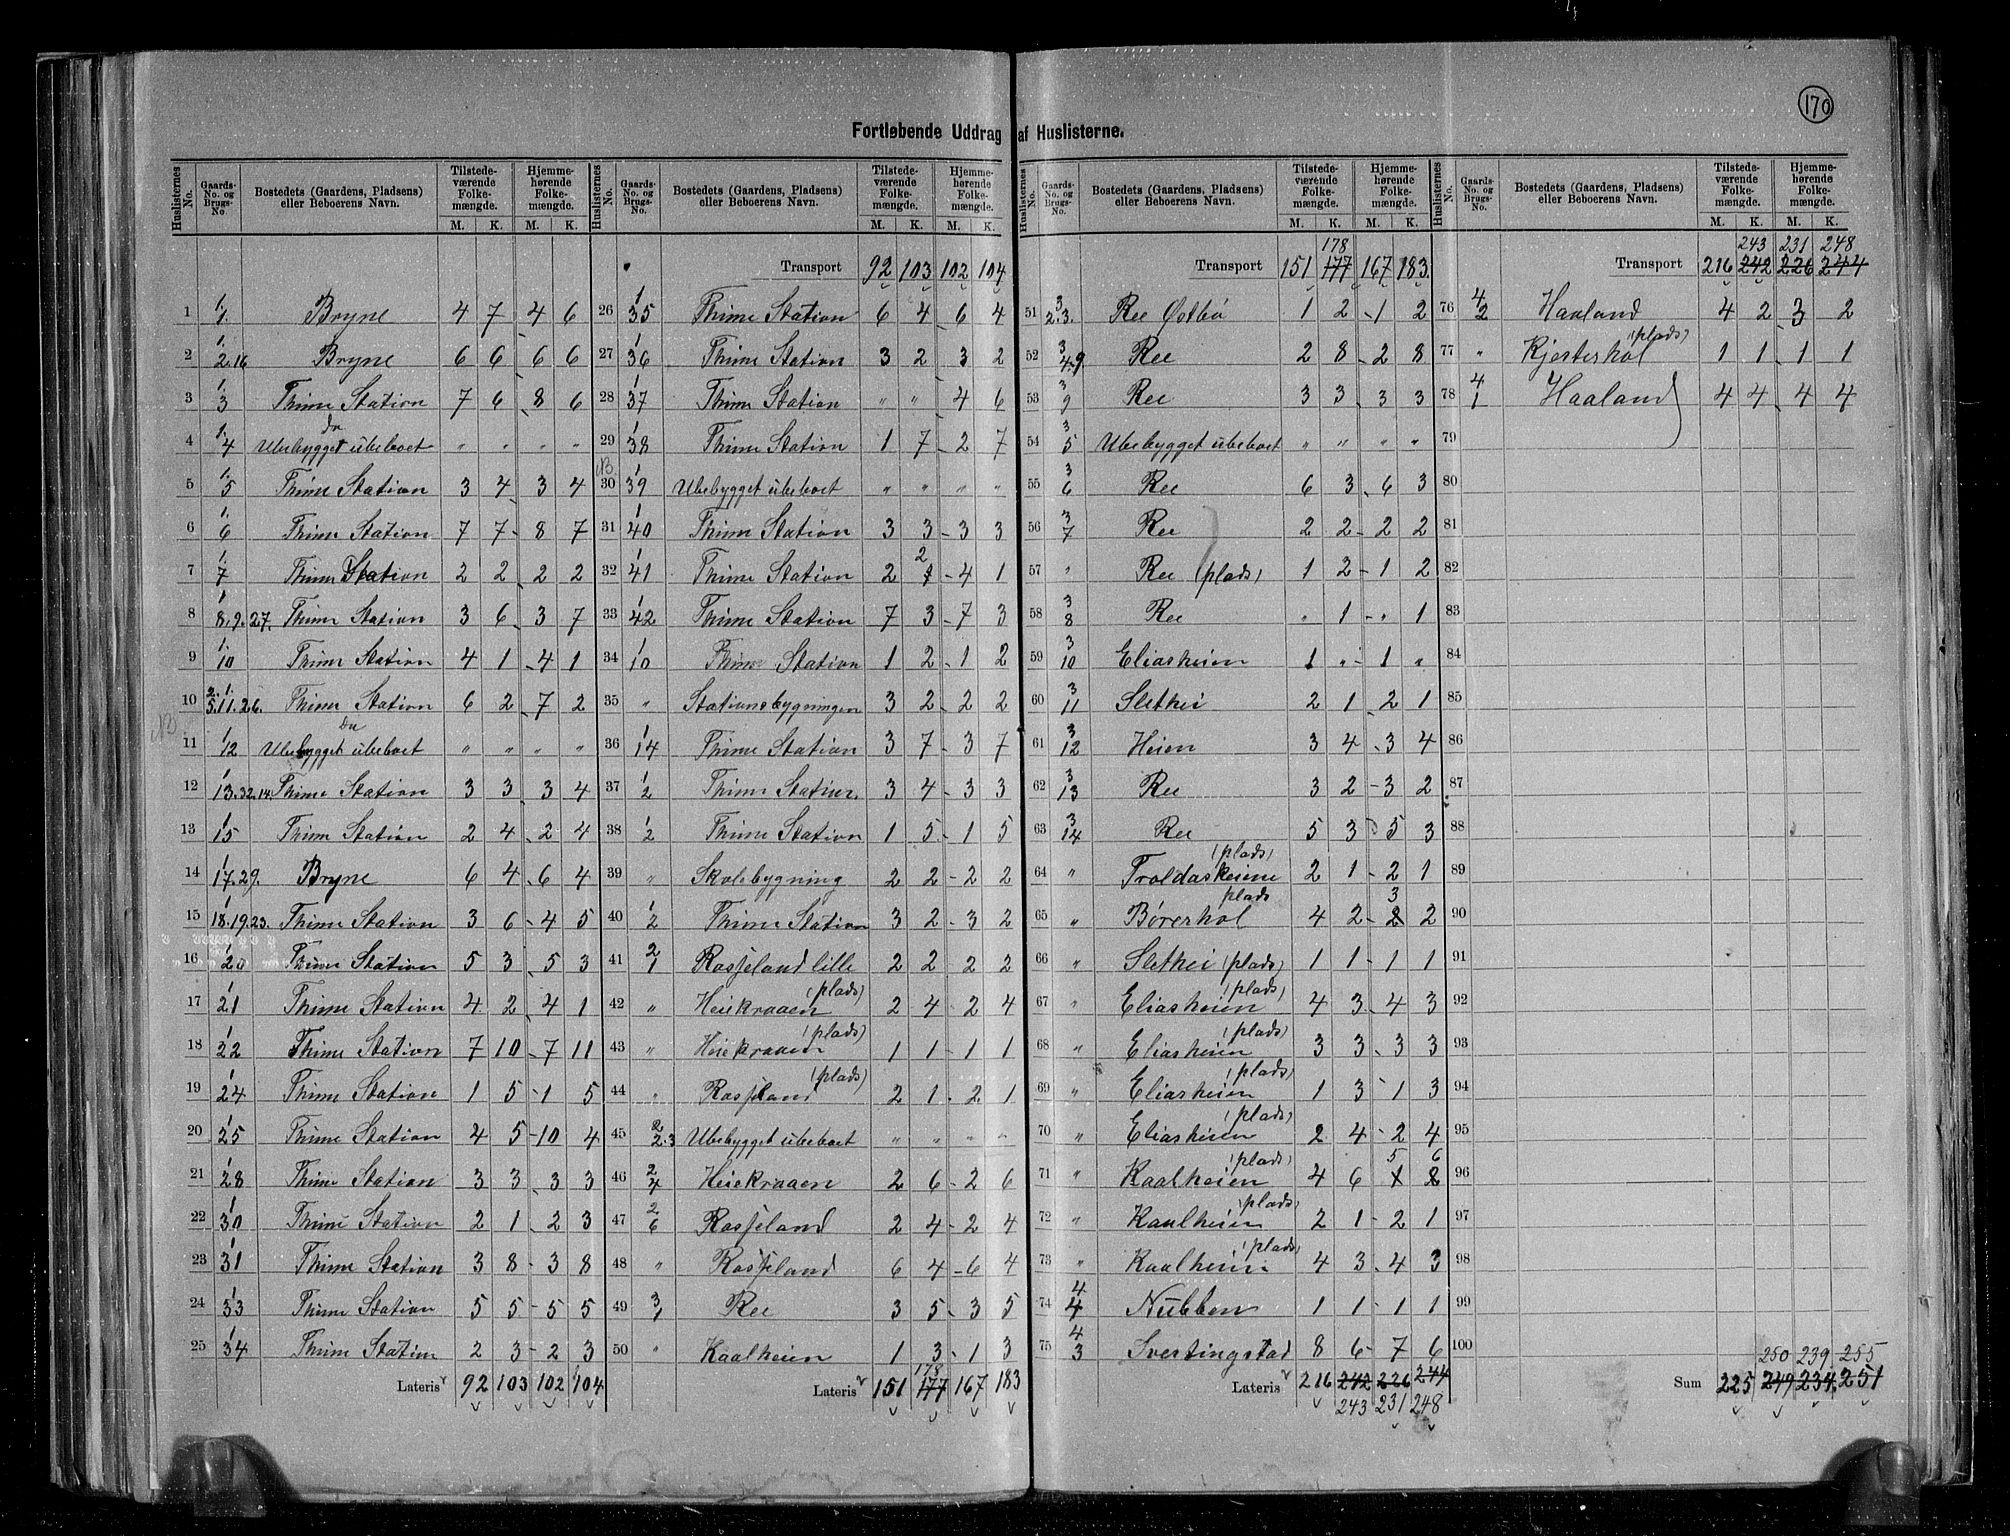 170
Fortløbende Uddrag af Huslisterne.
Huslisternes No. | Gaards-No. og Brugs-No. | Bostedets (Gaardens, Pladsens) eller Beboerens Navn. | Tilstedeværende Folkemængde. M. K. | Hjemmehørende Folkemængde. M. K.
1 1/1 Bryne 4 7 4 6
2 1/2.16 Bryne 6 6 6 6
3 1/3 Thime Station 7 6 8 6
4 1/4 do Ubebygget ubeboet " " " "
5 1/5 Thime Station 3 4 3 4
6 1/6 Thime Station 7 7 8 7
7 1/7 Thime Station 2 2 2 2
8 1/8.9.27. Thime Station 3 6 3 7
9 1/10 Thime Station 4 1 4 1
10 Thime Station 6 2 7 2
11 1/12 do Ubebygget ubeboet " " " "
12 1/13.32.14. Thime Station 3 3 3 4
13 1/15 Thime Station 2 4 2 4
14 1/17.29. Bryne 6 4 6 4
15 1/18.19.23. Thime Station 3 6 4 5
16 1/20 Thime Station 5 3 5 3
17 1/21 Thime Station 4 2 4 1
18 1/22 Thime Station 7 10 7 11
19 1/24 Thime Station 1 5 1 5
20 1/25 Thime Station 4 5 10 4
21 1/28 Thime Station 3 3 3 3
22 1/30 Thime Station 2 1 2 3
23 1/31 Thime Station 3 8 3 8
24 1/33 Thime Station 5 5 5 5
25 1/34 Thime Station 2 3 2 3
Lateris 92 103 102 104
Huslisternes No. | Gaards-No. og Brugs-No. | Bostedets (Gaardens, Pladsens) eller Beboerens Navn. | Tilstedeværende Folkemængde. M. K. | Hjemmehørende Folkemængde. M. K.
Transport 92 103 102 104
26 1/35 Thime Station 6 4 6 4
27 1/36 Thime Station 3 2 3 2
28 1/37 Thime Station " " 4 6
29 1/38 Thime Station 1 7 2 7
NB.
30 1/39 Ubebygget ubeboet " " " "
31 1/40 Thime Station 3 3 3 3
32 1/41 Thime Station 2 2 4 1
33 1/42 Thime Station 7 3 7 3
34 1/10 Thime Station 1 2 1 2
35 " Stationsbygningen 3 2 2 2
36 1/14 Thime Station 3 7 3 7
37 1/2 Thime Station 3 4 3 3
38 1/2 Thime Station 1 5 1 5
39 " Skolebygning 2 2 2 2
40 1/2 Thime Station 3 2 3 2
41 2/1 Rosseland lille 2 2 2 2
42 " Heiekraaen (plads) 2 4 2 4
43 " Heiekraaen (plads) 1 1 1 1
44 " Rosseland (plads) 2 1 2 1
45 2/2.3 Ubebygget ubeboet " " " "
46 2/4 Heiekraaen 2 6 2 6
47 2/6 Rosseland 2 4 2 4
48 " Rosseland 6 4 6 4
49 3/1 Ree 3 5 3 5
50 " Kaalheien 1 3 1 3
Lateris 151 177 178 167 183
Huslisternes No. | Gaards-No. og Brugs-No. | Bostedets (Gaardens, Pladsens) eller Beboerens Navn. | Tilstedeværende Folkemængde. M. K. | Hjemmehørende Folkemængde. M. K.
Transport 151 177 178 167 183
51 3/2.3. Ree Østbø 1 2 1 2
52 3/4.9 Ree 2 8 2 8
53 3/9 Ree 3 3 3 3
54 3/5 Ubebygget ubeboet " " " "
55 3/6 Ree 6 3 6 3
56 3/7 Ree 2 2 2 2
57 " Ree (plads) 1 2 1 2
58 3/8 Ree " 1 " 1
59 3/10 Eliasheien 1 " 1 "
60 3/11 Slethei 2 1 2 1
61 3/12 Heien 3 4 3 4
62 3/13 Ree 3 2 3 2
63 3/14 Ree 5 3 5 3
64 " (plads) 2 1 2 1
65 " Børerhol plads 4 2 3 2
66 " Slethei (plads) 1 1 1 1
67 " Eliasheien (plads) 4 3 4 3
68 " Eliasheien (plads) 3 3 3 3
69 " Eliasheien (plads) 1 3 1 3
70 " Eliasheien (plads) 2 4 2 4
71 " Kaalheien (plads) 4 6 5 6
72 " Kaalheien (plads) 2 1 2 1
73 " Kaalheien (plads) 4 3 4 3
74 4/4 Nubben 1 1 1 1
75 4/3 Svertingstad 8 6 7 6
Lateris 216 242 226 244
243 231 248
Huslisternes No. | Gaards-No. og Brugs-No. | Bostedets (Gaardens, Pladsens) eller Beboerens Navn. | Tilstedeværende Folkemængde. M. K. | Hjemmehørende Folkemængde. M. K.
243 231 248
Transport 216 242 226 244
76 4/2 Haaland 4 2 3 2
77 " Kjesterhol (plads) 1 1 1 1
78 4/1 Haaland 4 4 4 4
79
80
81
82
83
84
85
86
87
88
89
90
91
92
93
94
95
96
97
98
99
100
250 239 255
Sum 225 249 234 251